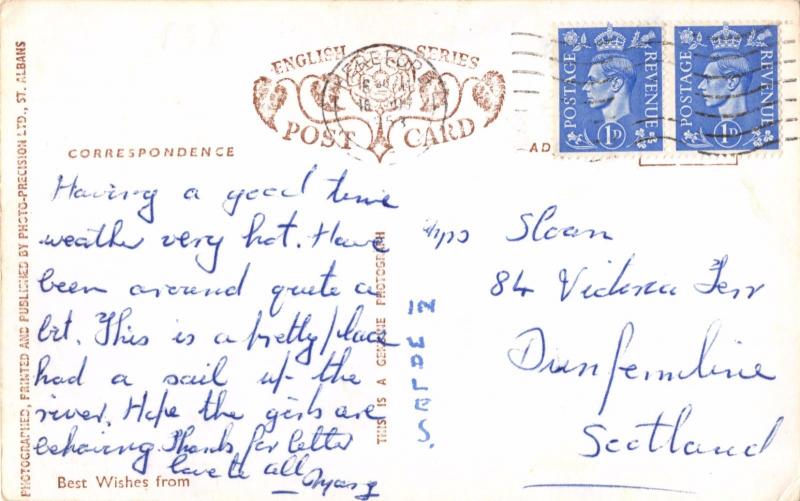 ENGLISH SERIES
POST CARD
HEREFORD
POSTAGE REVENUE
1D
POSTAGE REVENUE
1D
CORRESPONDENCE
AD
Having a good time
weather very hot. Have
been around quite a
bit. This is a pretty place
had a sail up the
river. Hope the girls are
behaving Thanks for letter
love to all
Best Wishes from
PHOTOGRAPHED, PRINTED AND PUBLISHED BY PHOTO-PRECISION LTD., ST. ALBANS
THIS IS A GENUINE PHOTOGRAPH
IN WALES.
Sloan
84 Victoria Terr
Dunfermline
Scotland